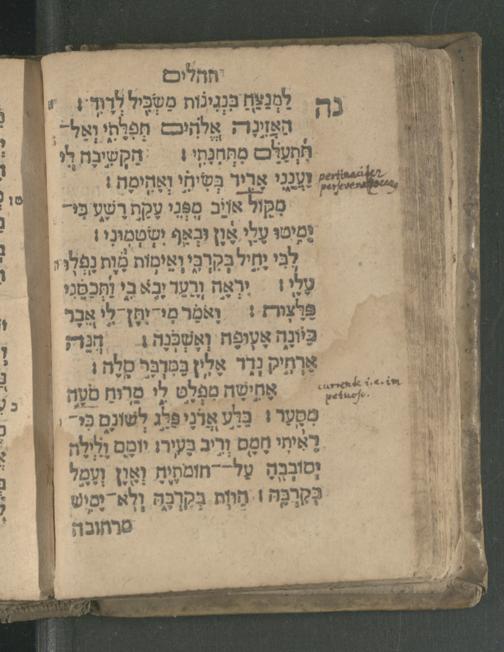 תהלים
נה
לַמְנַצֵּחַ בִּנְגִינוֹת מַשְׂכִּיל לְדָוִד׃
הַאֲזִינָה אֱלֹהִים תְּפִלָּתִי וְאַל־
תִּתְעַלַּם מִתְּחִנָּתִי׃ הַקְשִׁיבָה לִּי
וַעֲנֵנִי אָרִיד בְּשִׂיחִי וְאָהִימָה׃
מִקּוֹל אוֹיֵב מִפְּנֵי עָקַת רָשָׁע כִּי־
יָמִיטוּ עָלַי אָוֶן וּבְאַף יִשְׂטְמוּנִי׃
לִבִּי יָחִיל בְּקִרְבִּי וְאֵימוֹת מָוֶת נָפְלוּ
עָלָי׃ יִרְאָה וָרַעַד יָבֹא בִי וַתְּכַסֵּנִי
פַּלָּצוּת׃ וָאֹמַר מִי־יִתֶּן־לִּי אֵבֶר
כַּיּוֹנָה אָעוּפָה וְאֶשְׁכֹּנָה׃ הִנֵּה
אַרְחִיק נְדֹד אָלִין בַּמִּדְבָּר סֶלָה׃
אָחִישָׁה מִפְלָט לִי מֵרוּחַ סֹעָה
מִסָּעַר׃ בַּלַּע אֲדֹנָי פַּלַּג לְשׁוֹנָם כִּי־
רָאִיתִי חָמָס וְרִיב בָּעִיר׃ יוֹמָם וָלַיְלָה
יְסוֹבְבֻהָ עַל־חוֹמֹתֶיהָ וְאָוֶן וְעָמָל
בְּקִרְבָּהּ׃ הַוּוֹת בְּקִרְבָּהּ וְלֹא־יָמִישׁ
מרחובה
pertinaciter
currente i.e. im
petuoso.